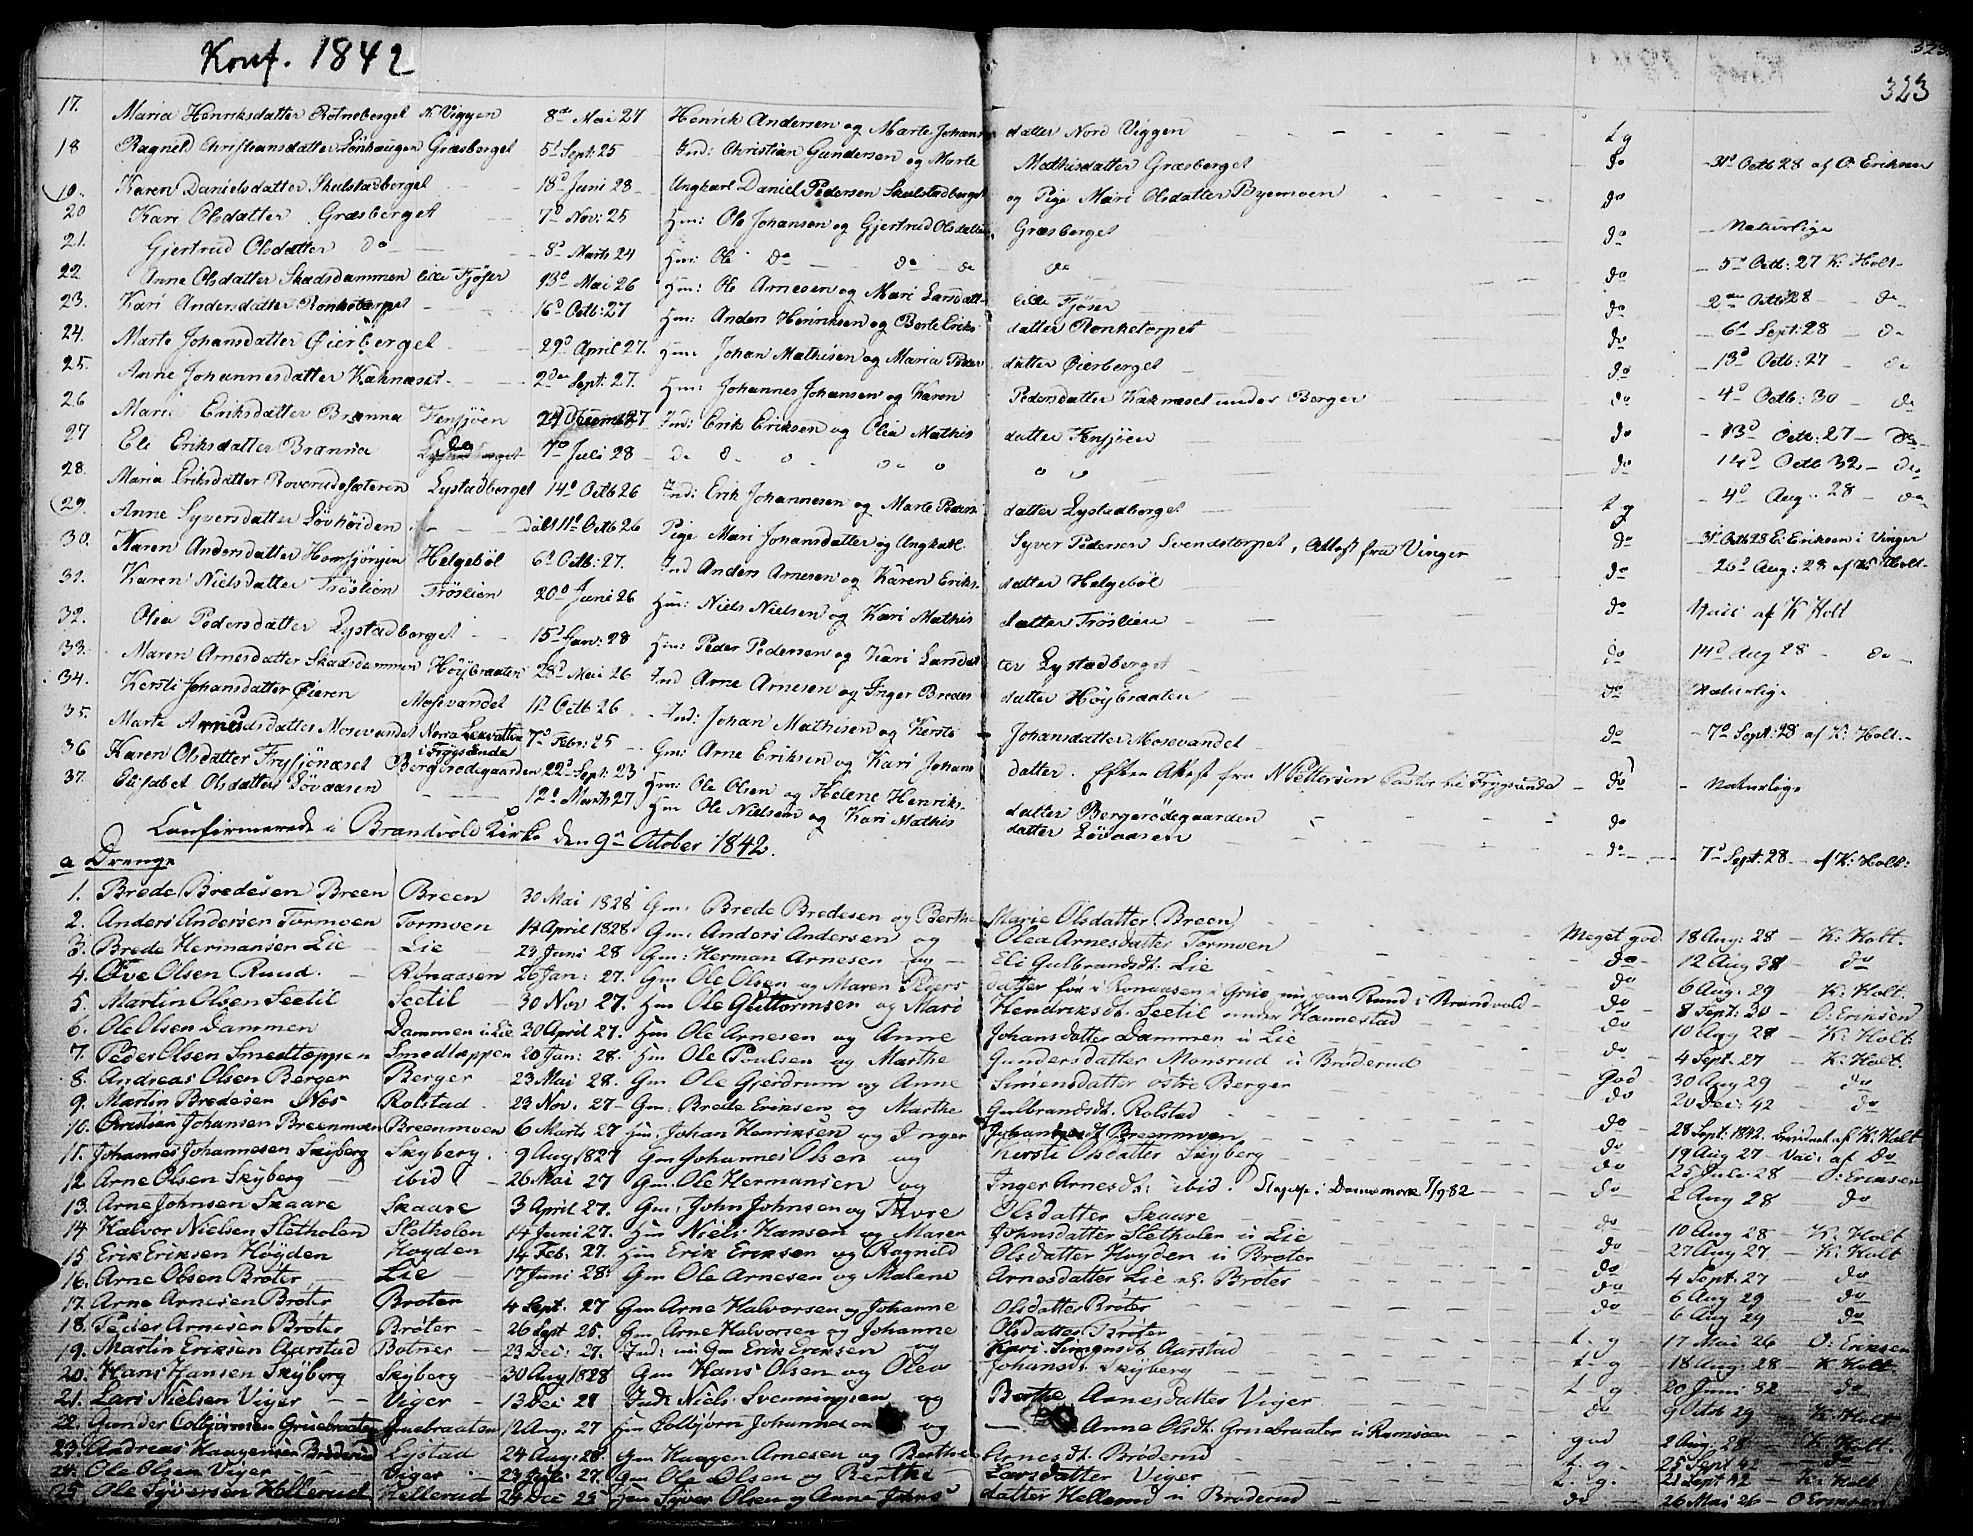 Konf. 1842
323
323
17. Maria Henriksdatter Rotneberget N. Viggen 8de Mai 27 Henrik Andersen og Marte Johans datter Nord Viggen t g
18 Ragnild Christiansdatter Lönhaugen Græsberget 5t Sept: 25 Ind: Christian Gundersen og Marte Mathisdatter Græsberget do 31t Octb 28 af O. Eriksen
19. Karen Danielsdatter Skulstadberget 18d Juni 28 Ungkarl Daniel Pedersen Skulstadberget og Pige Mari Olsdatter Byemoen do
20 Kari Olsdatter Græsberget 7d Nov: 25 Hm: Ole Johansen og Gjertrud Olsdatter Græsberget do Naturlige
21. Gjertrud Olsdatter do 8d Marts 24 Hm: Ole do do do do do 5t Octb: 27 K: Holt
22 Anne Olsdatter Skadsdammen lille Fjöser 13d Mai 26 Hm: Ole Arnesen og Mari Larsdatt lille Fjöser do 2den Octb 28 do
23. Kari Andersdatter Ronketorpet 16d Octb: 27 Hm: Anders Henriksen og Borte Eriks datter Ronketorpet do 6t Sept: 28 do
24. Marte Johansdatter Öierberget 29d April 27. Hm: Johan Mathisen og Maria Peder datter Öierberget do 13d Octb: 27 do
25. Anne Johannesdatter Kaknæset 2den Sept: 27. Hm: Johannes Johansen og Karen Pedersdatter Kaknæset under Berger do 4d Octb: 30 do
26 Mari Eriksdatter Brænna Fensjöen 24 Decemb 27 Ind: Erik Eriksen og Olia Mathis datter Fensjöen do 13d Octb: 27 do
27 Eli Eriksdatter Brænna do 7d Juli 28 do do 14d Octb 32 do
28. Maria Eriksdatter Roverudsæteren Lystadberget 14d Octb 26 Ind: Erik Johannesen og Marte Peders datter Lystadberget t g 4d Aug. 28 do
29. Anne Syversdatter Lövhöiden Döbt 11d Octb 26 Pige Mari Johansdatter og Ungkarl Syver Pedersen Svendstorpet, Attest fra Vinger do 31t Octb 28 E: Eriksen i Vinger
30. Karen Andersdatter Homsjöngen Helgeböl 6d Octb: 27. Ind Anders Arnesen og Karen Eriks datter Helgeböl do 26d Aug: 28 af K: Holt
31. Karen Nielsdatter Tröslien Tröslien 20d Juni 26 Hm: Niels Nielsen og Kari Mathis datter Tröslien do Vacc af K Holt
32. Olia Pedersdatter Lystadberget 15d Jan: 28 Hm: Peder Pedersen og Kari Larsdat ter Lystadberget do 14d Aug 28 do
33. Maren Arnesdatter Skadsdammen Höybraaten 28d Mai 26 Ind Arne Arnesen og Inger Bredes datter Höybraaten do Naturlige
34. Kersti Johansdatter Öieren Mosevandet 12 Octb 26 Ind: Johan Mathisen og Kersti Johansdatter Mosevandet do 7d Sept: 28 af K: Holt
35. Marte Arnesdatter Mosevandet Norra Lekvatten i Frygsænde 7d Febr: 25 Gm: Arne Eriksen og Kari Johans datter. Efter Attest fra N Pettersson Pastor til Frygsunda do Naturlige
36 Karen Olsdatter Frysjönæset Bergerödegaarden 22d Sept: 23 Hm: Ole Olsen og Helene Henriks datter Bergerödegaarden do
37. Elisabet Olsdatter Lövaasen 12d Marts 27 Hm Ole Nielsen og Kari Mathis datter Lövaasen do 7d Sept: 28 af K: Holt
Confirmerede i Brandvold Kirke den 9n October 1842.
a Drenge
1. Brede Bredesen Breen Breen 30 Mai 1828 Gm: Brede Bredesen og Berthe Marie Olsdatter Breen Meget god 18 Aug: 28 K: Holt.
2. Anders Andersen Tormoen Tormoen 14 April 1828 Gm: Anders Andersen og Olea Arnesdatter Tormoen do 12 Aug 38 do
3. Brede Hermansen Lie Lie 23 Juni 28 Gm: Herman Arnesen og Eli Gulbrandsdt. Lie do 6 Aug. 29 K: Holt.
4. Ove Olsen Ruud. Rönaasen 26 Jan: 27. Gm Ole Olsen og Maren Peders datter før i Rönaasen i Grue, nu paa Ruud i Brandvold do 8 Sept: 30 O: Eriksen
5. Martin Olsen Seetil Seetil 30 Nov 27. Hm Ole Guttormsen og Mari Hendriksdt. Seetil under Hannestad do 10 Aug 28 K: Holt
6. Ole Olsen Dammen Dammen u: Lie 30 April 27. Hm Ole Arnesen og Anne Johansdatter Dammen u Lie do 4 Sept. 27 K: Holt
7. Peder Olsen Smedtæppen Smedtæppen 20 Jan: 28. Hm Ole Poulsen og Marthe Gundersdatter Monsrud u Bröderud God 30 Aug 29 do
8. Andreas Olsen Berger Berger 23 Mai 28. Gm Ole Gjerdrum og Anne Simensdatter østre Berger do 20 Dec: 42 do
9. Martin Bredesen Næs Rolstad 23 Nov. 27 Gm: Brede Eriksen og Marthe Gulbrandsdt. Rolstad do 28 Sept: 1842. af K: Holt
10. Christian Johansen Breenmoen Breenmoen 6 Marts 27 Hm: Johan Henriksen og Inger Breenmoen do 19 Aug 27 Vac: af do
11. Johannes Johannesen Skyberg Skyberg. 9 Aug 1827 Gm Johannes Olsen og Kersti Olsdatter Skyberg do 25 Juli 28 O: Eriksen
12 Arne Olsen Skyberg ibid 26 Mai 27 Gm: Ole Hermansen og Inger Arnesdt: ibid. i Danemora 7/9 82 do 2 Aug 28 do
13. Arne Johnsen Skaare Skaare 3 April 27. Gm, John Johnsen og Thore Olsdatter Skaare do 10 Aug 28 K: Holt
14 Halvor Nielsen Sletholen Sletholen 14 Juni 27. Hm Niels Hansen og Maren Johnsdatter Sletholen u Lie do 27 Aug 27 K: Holt
15 Erik Eriksen Høyden Hoyden 14 Feb. 27. Hm Erik Eriksen og Ragnild Olsdatter Hoyden u Broter do 4 Sept: 27 do
16. Arne Olsen Broter Lie 17 Juni 28. Gm Ole Arnesen og Malene Arnesdatter Lie Broter do 6 Aug 29 do
17. Arne Arnesen Broter Broter 4 Sept. 27 Gm Arne Halvorsen og Johanne Olsdatter Bröter do 6 Aug 29 do
18. Peder Arnesen Bröter Bröter 26 Sept 25. Gm Arne Halvorsen og Johanne Olsdatter Bröter t. g 17 Mai 26 O: Eriksen
19. Martin Eriksen Aarstad Botner 23 Dec: 27. Erik Eriksen og Kari Simonsdt Aarstad t g 18 Aug: 28 K Holt
20. Hans Hansen Skyberg Skyberg 30 Aug 1828 Gm Hans Olsen og Olea Johansdt. Skyberg t g 20 Juni 32 do
21. Lars Nielsen Viger Viger 13 Dec 28 Inds Niels Svenningsen og Berthe Arnesdatter Viger do 9 Octb 29 K: Holt
22. Gunder Colbjørnsen Gruebraaten Gruebraaten 12 Aug: 27 Hm Colbjørn Johannesen og Anne Olsdt. Gruebraaten u Ramsöen god 2 Aug. 28 K: Holt.
23. Andreas Haagensen Bröderud Lystad 24 Aug: 28. Gm Haagen Arnesen og Berthe Arnesdt. Bröderud t. g. 25 Sept 42 do
24. Ole Olsen Viger Viger 23 Juli 27. Gm Ole Olsen og Berthe Larsdatter Viger t. g. 21 Sept 42 K: Holt
25. Ole Syversen Hellerud Hellerud 24 Dec 25 Hm Syver Olsen og Anne Johns datter Hellerud u Bröderud do 26 Mai 26 O Eriksen